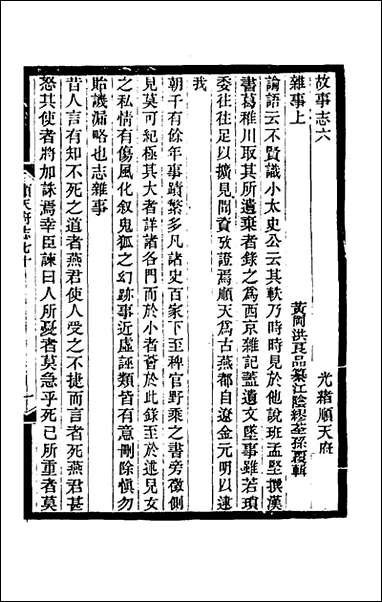 故事志六
光緒順天府
雜事上
黃岡洪良品纂江陰繆荃孫覆輯
論語云不賢識小太史公云其軼乃時時見於他說班孟堅撰漢
書葛稚川取其所遺棄者錄之為西京雜記蓋遺文墜事雖若瑣
委往往足以擴見聞資攷證焉順天為古燕都自遼金元明以逮
我
朝千有餘年事蹟繁多凡諸史百家下至稗官野乘之書旁徵側
見莫可紀極其大者詳諸各門而於小者薈於此錄至於逑兒女
之私情有傷風化叙鬼狐之幻跡事近虛誣類皆有意刪除愼勿
貽譏漏略也志雜事
昔人言有知不死之道者燕君使人受之不捷而言者死燕君甚
怒其使者將加誅焉幸臣諫曰人所憂者莫急乎死己所重者莫
順天府志七十